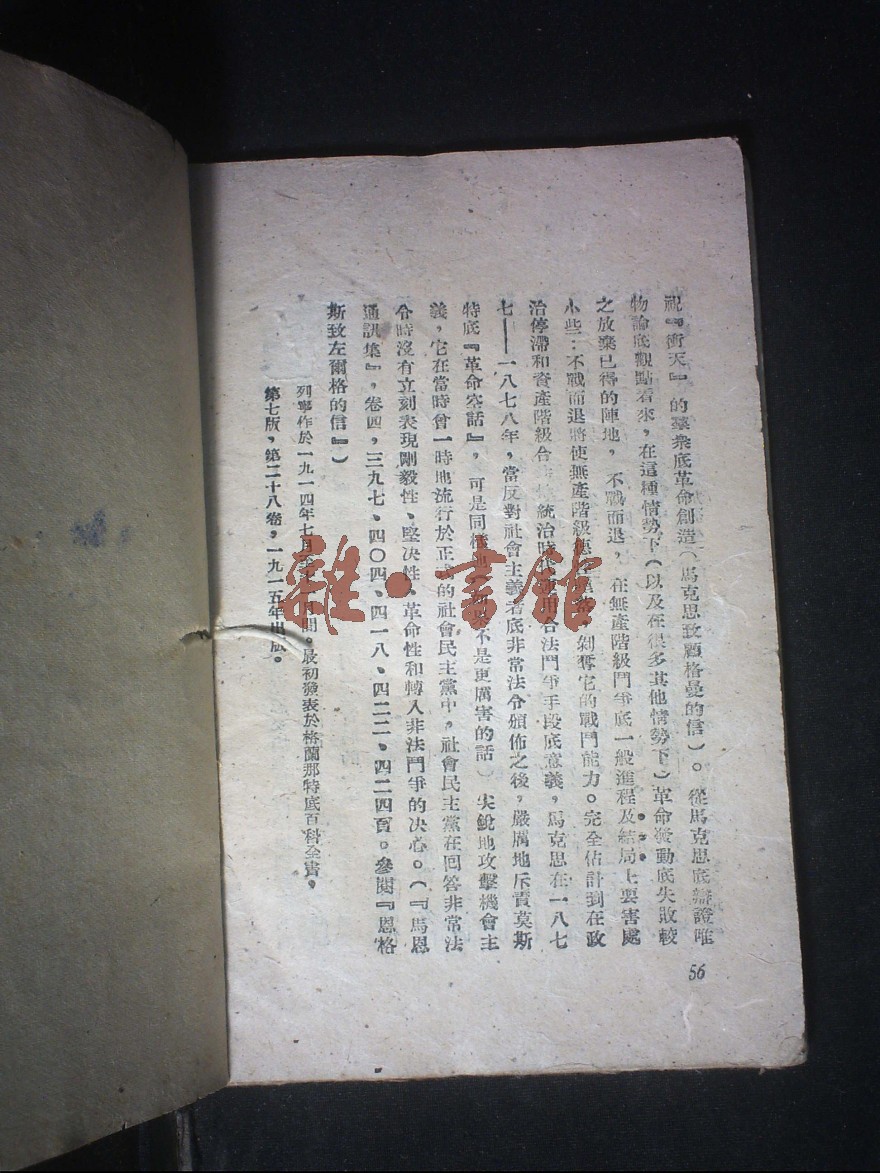 視『衝天』的羣衆底革命創造(馬克思致顧格曼的信)。從馬克思底辯證唯
物論底觀點看來,在這種情勢下(以及在很多其他情勢下)革命發動底失敗較
之放棄已得的陣地,不戰而退,在無產階級鬥爭底一般進程及結局上要害處
小些:不戰而退將使無產階級 剝奪它的戰鬥能力。完全估計到在政
治停滯和資產階級合 統治時 運用合法鬥爭手段底意義,馬克思在一八七
七——一八七八年,當反對社會主義者底非常法令頒佈之後,嚴厲地斥責莫斯
特底『革命空話』,可是同樣地 不是更厲害的話)尖銳地攻擊機會主
義,它在當時曾一時地流行於正式的社會民主黨中,社會民主黨在回答非常法
令時沒有立刻表現剛毅性、堅決性、革命性和轉入非法鬥爭的決心。(『馬恩
通訊集』,卷四,三九七、四〇四、四一八、四二二、四二四頁。參閱『恩格
斯致左爾格的信』)
列寧作於一九一四年七月至十一月間。最初發表於格蘭那特底百科全書,
第七版,第二十八卷,一九一五年出版。
56
雜·書館